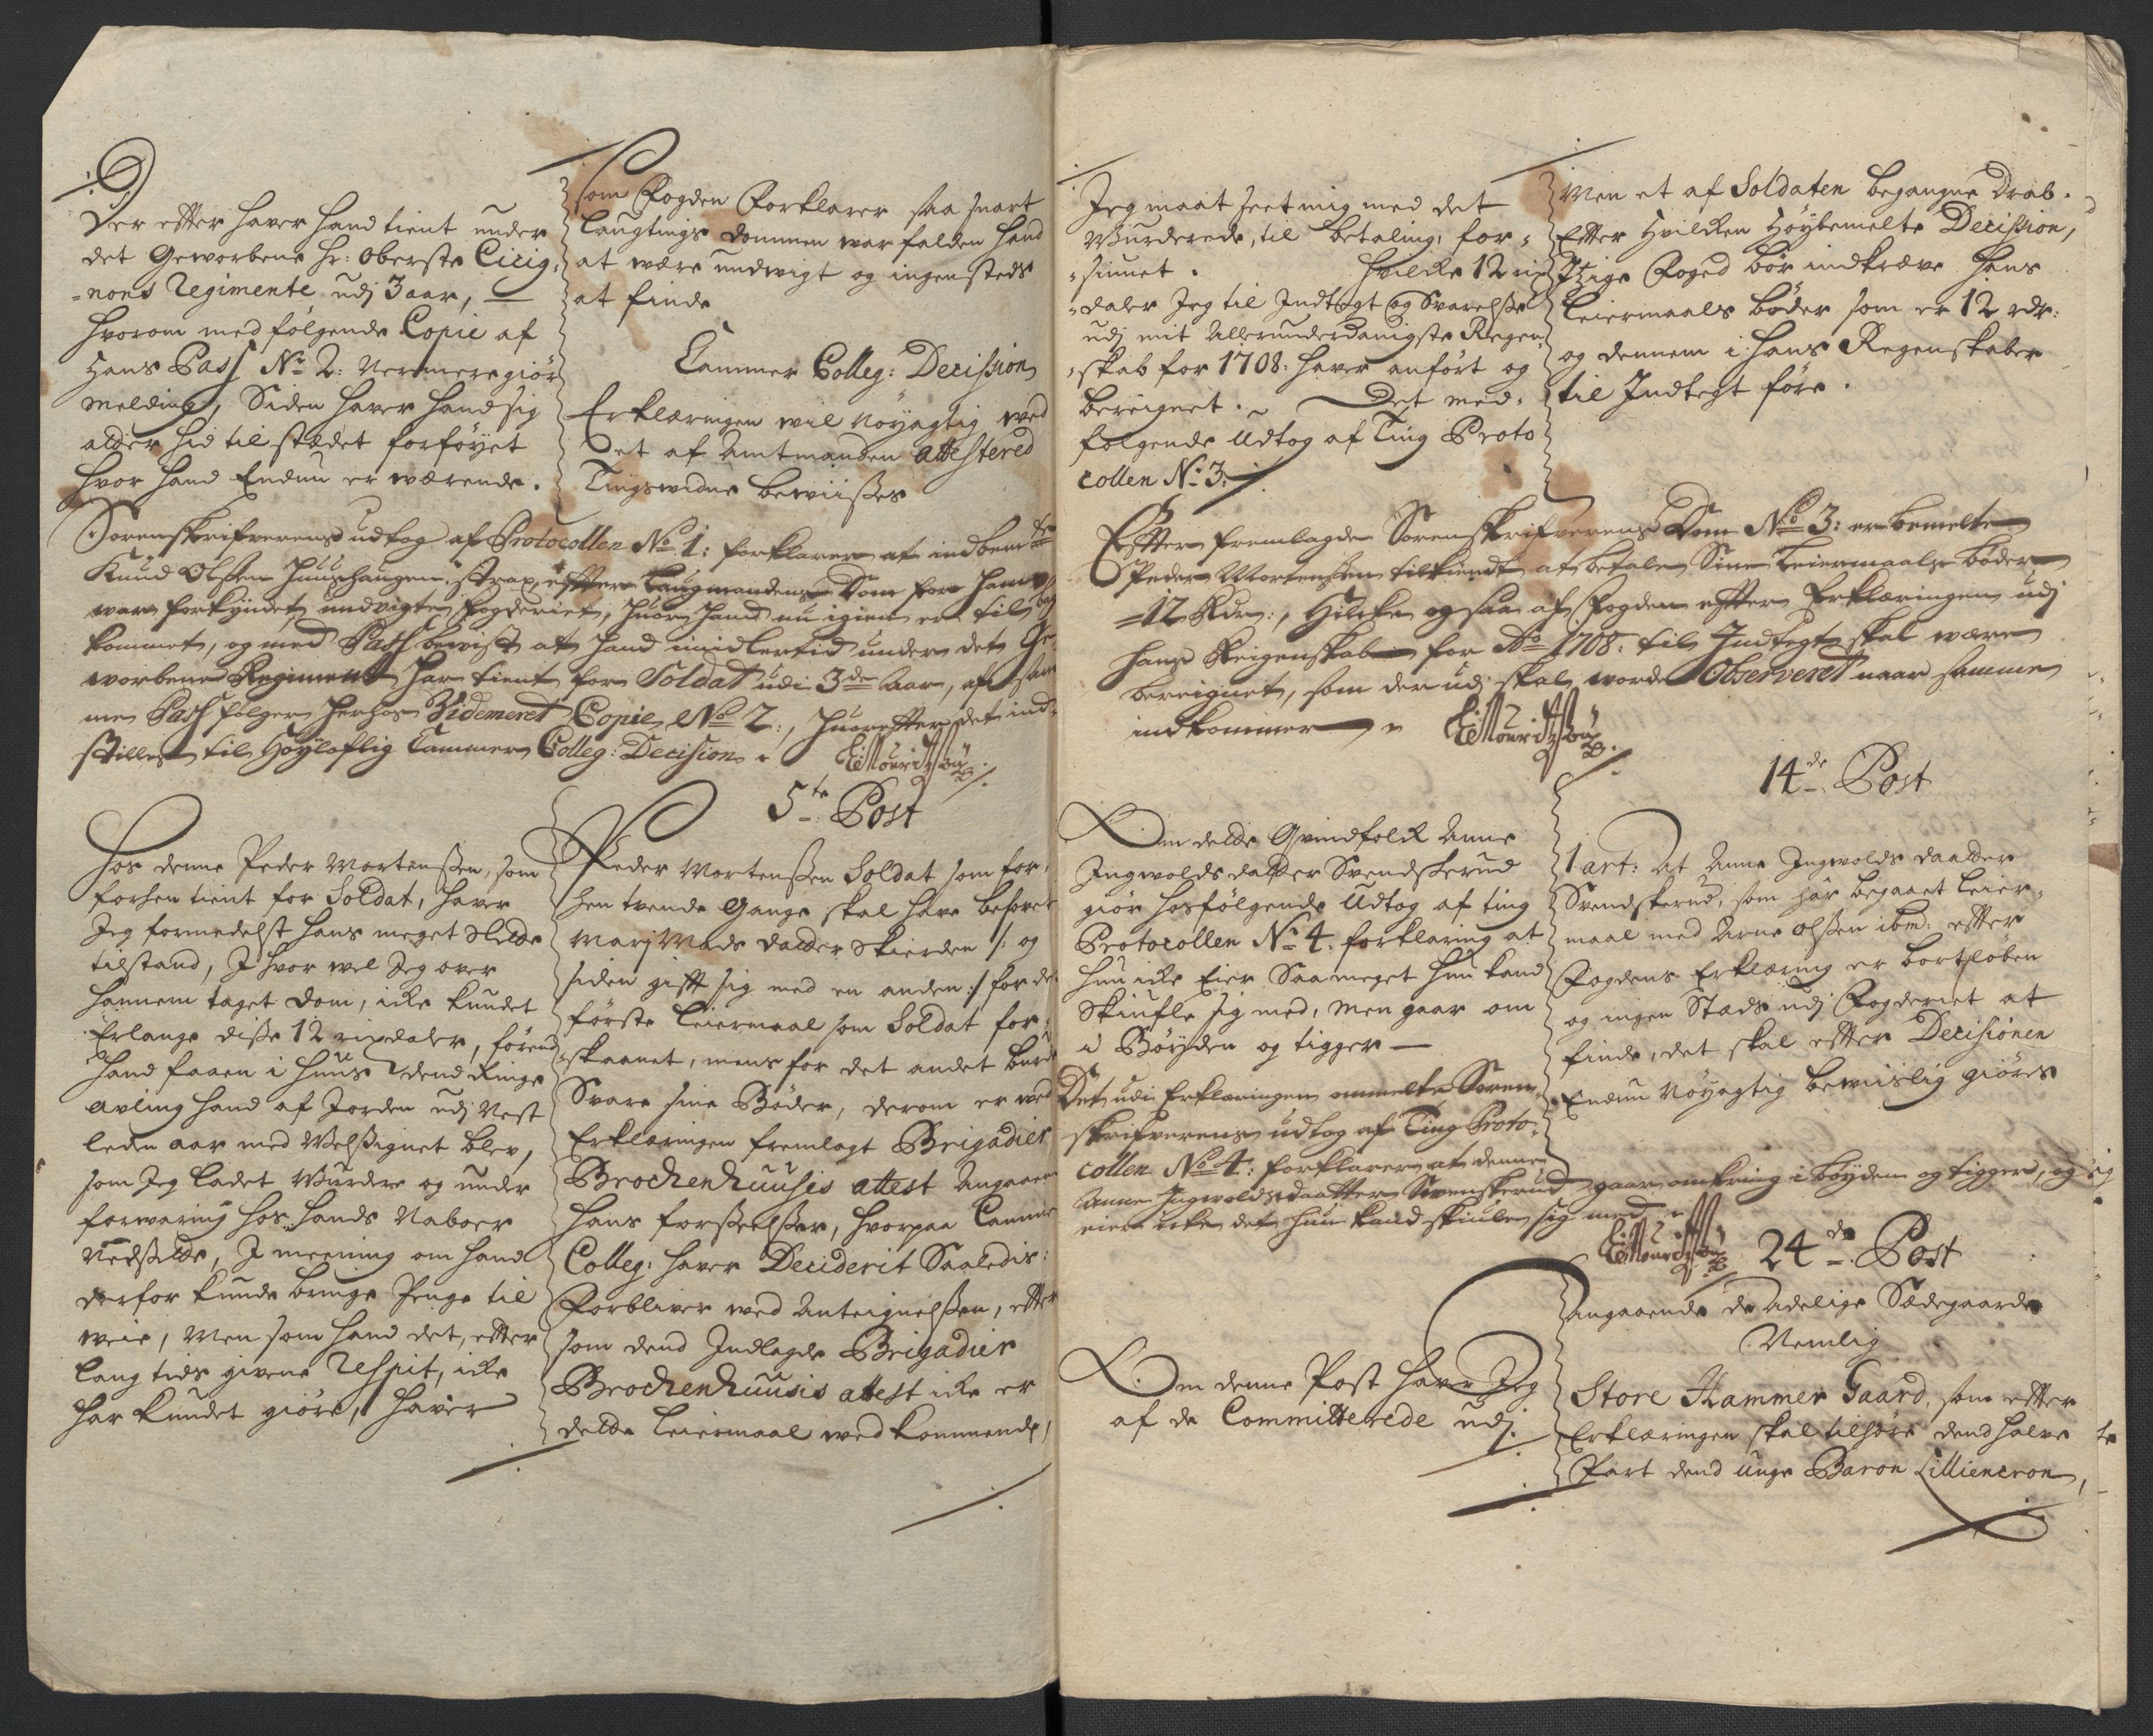 Der efter haver hand tient under
det Geworbene Hr: Oberste Cicig¸
=nons Regimente udj 3 aar, —
hvorom medfølgende Copie af
Hans Pass No 2: nermere giør
melding, Siden haver hand sig
alder hid til stædet forføyet
hvor hand Endnu er værende.
som Fogden Forklarer saa snart
Laugtings Dommen war falden hand
at være undvigt og ingensteds
at finde
Cammer Colleg: Decision
Erklæringen wil Nøyagtig med
et af Amtmanden attestered
Tingswidne bewiisses
Sorenskrifverens udtog af Protocollen No 1: forklarer at indbemte
Knud Olssen Huushaugen strax efter Laugmandens Dom for ham
war forkyndet, undvigte fogderiet, huor hand nu igien er til
kommet, og med Pass bevist at hand imidlertid under det Ge¸
worbene Regiment har tient for Soldat udi 3de Aar, af sam
me Pass følger herhos Videmeret Copie No 2:, huorefter det ind¸
stilles til Høyloflig Cammer Colleg: Decision
5te Post
Hos denne Peder Mortenssen, som
forhen tient for Soldat, haver
Jeg formedelst hans meget slette
tilstand, J hvor vel Jeg over
hannem taget Dom, icke kundet
Erlange disse 12 rixdaler, førend
hand faaen i huus dend Ringe
avling hand af Jorden udj Nest
leden aar med Velssignet blev,
som Jeg ladet Wurdere og under
forwaring hos hands Naboer
Nedsætte, J meening om hand
derfor kunde bringe Penge til
weie, Men som hand det, efter
lang tids givene Respit, icke
har kundet giøre, haver
Peder Mortenssen Soldat som for¸
hen tvende Gange skal have besovet
Marj Mads datter Skierden /: og
siden gift sig med en anden :/ for det
første Leiermaal som Soldat for¸
skaanet, mens for det andet burde
Svare sine Bøder, derom er med
Erklæringen fremlagt Brigadier
Brochenhuusis attest Angaaende
hans forseelsser, hvorpaa Cammer
Colleg: haver Deciderit Saaledis:
Forbliver ved Anteignelssen, efter
som dend Jndlagde Brigadier
Brochenhuusis attest icke er
dette Leiermaal wedkommende,
Jeg maat seet mig med det
Wurderede, til betaling, for¸
=siunet. Hvilke 12 rix
=daler Jeg til Jndtegt og Svarelsse
udj mit Allerunderdanigste Regen
=skab for 1708: haver anført og
bereignet. Det med¸
følgende Udtog af Ting Proto
collen No 3.
Men et af Soldaten begangne Drab.
Efter Hvilken Høybemelte Decission,
Jtzige Foged bør indkræve hans
Leiermaals bøder som er 12 rdr:
og dennem i hans Regenskaber
til Jndtegt føre.
Efter fremlagde Sorenskrifverens Dom No 3: er bemelte
Peder Mortenssen tilkiendt at betale Sine Leiermaals bøder
=12 Rdr:, Hilcke og saa af Fogden efter Erklæringen udj
hans Reigenskab for Ao 1708: til Jndtegt skal være
bereignet, som der udj skal worde Observeret naar samme
indkommer
14de Post
Om dette Qvindfolk Anne
Jngwolds datter Svendskerud
giør hosfølgende Udtog af ting
Protocollen No 4. forklaring at
hun icke Eier Saameget hun kand
skiufle sig med, men gaar om
i Bøyden og tigger —
1 art: At Anne Jngwolds daatter
Svendskerud, som har begaaet Leier¸
maal med Arne Olssen ibm: efter
Fogdens Erklæring er bortløben
og ingen Stæds udj Fogderiet at
finde, det skal efter Decisionen
Endnu Nøyagtig bewiislig giøres
Det udi Erklæringen ommelte Soren¸
skrifverens udtog af Ting Proto¸
collen No 4: forklarer at denne
Anne Jngwoldsdaatter Svenskerud gaar omkring i bøyden og tigger, og
eier icke det hun kand skiule sig med
24de Post
Om denne Post haver Jeg
af de Committerede udj.
Angaaende de Adelige Sædegaarde
Nemlig
Store Hammer Gaard, som efter
Erklæringen skal tilhøre dend halve
Part dend unge Baron Lilliencron,